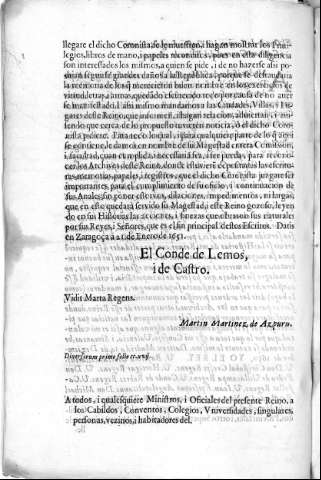 llegare el dicho Coronista, se le muestren, i hagan mostrar los Priui-
legios, libros de mano, i papeles reconditos, pues en esta diligencia
son interessados los mismos, a quien se pide, i de no hazerse assi po-
drian seguirse grandes daños a la Republica; porque se defraudaria
la memoria de los que merecieron buen nombre en los exercicios de
virtud, letras, i armas, quedando escurecido tanto por causa de no auer-
se manifestado. I assi mismo mandamos a las Ciudades, Villas, i Lu-
gares deste Reino, que informen, i hagan relacion, assistiendo, i
siendo que cerca de lo propuesto tuuieren noticia, o el dicho Coro-
nista pidiere. Para to lo qual, i para qualquiere parte de lo que aqui
se contiene, le damos en nombre de su Magestad entera Comission,
i facultad, quan cumplida, i necessaria sea, i ser pueda, para recono-
cer los Archiuos deste Reino, donde estuuieren depositadas las escritu-
ras, memorias, papeles, i registros, que el dicho Coronista juzgare ser
importantes para el cumplimiento de su oficio, i continuacion de
sus Anales; sin poner estoruos, dilaciones, impedimentos, ni largas,
que en esto quedará seruido su Magestad, i este Reino gozoso, leyen
do en sus Historias las acciones, i finezas que obraron sus naturales
por sus Reyes, i Señores, que es el fin principal destos Escritos. Datis
en Zaragoça à 21. de Enero de 1651.
El Conde de Lemos,
i de Castro.
Vidit Marta Regens.
Martin Martinez de Azpuru.
Diuersorum primo folio
A todos, i qualesquiere Ministros, i Oficiales del presente Reino, a
los Cabildos, Conventos, Colegios, Vniuersidades, singulares,
personas, vezinos, i habitadores del.